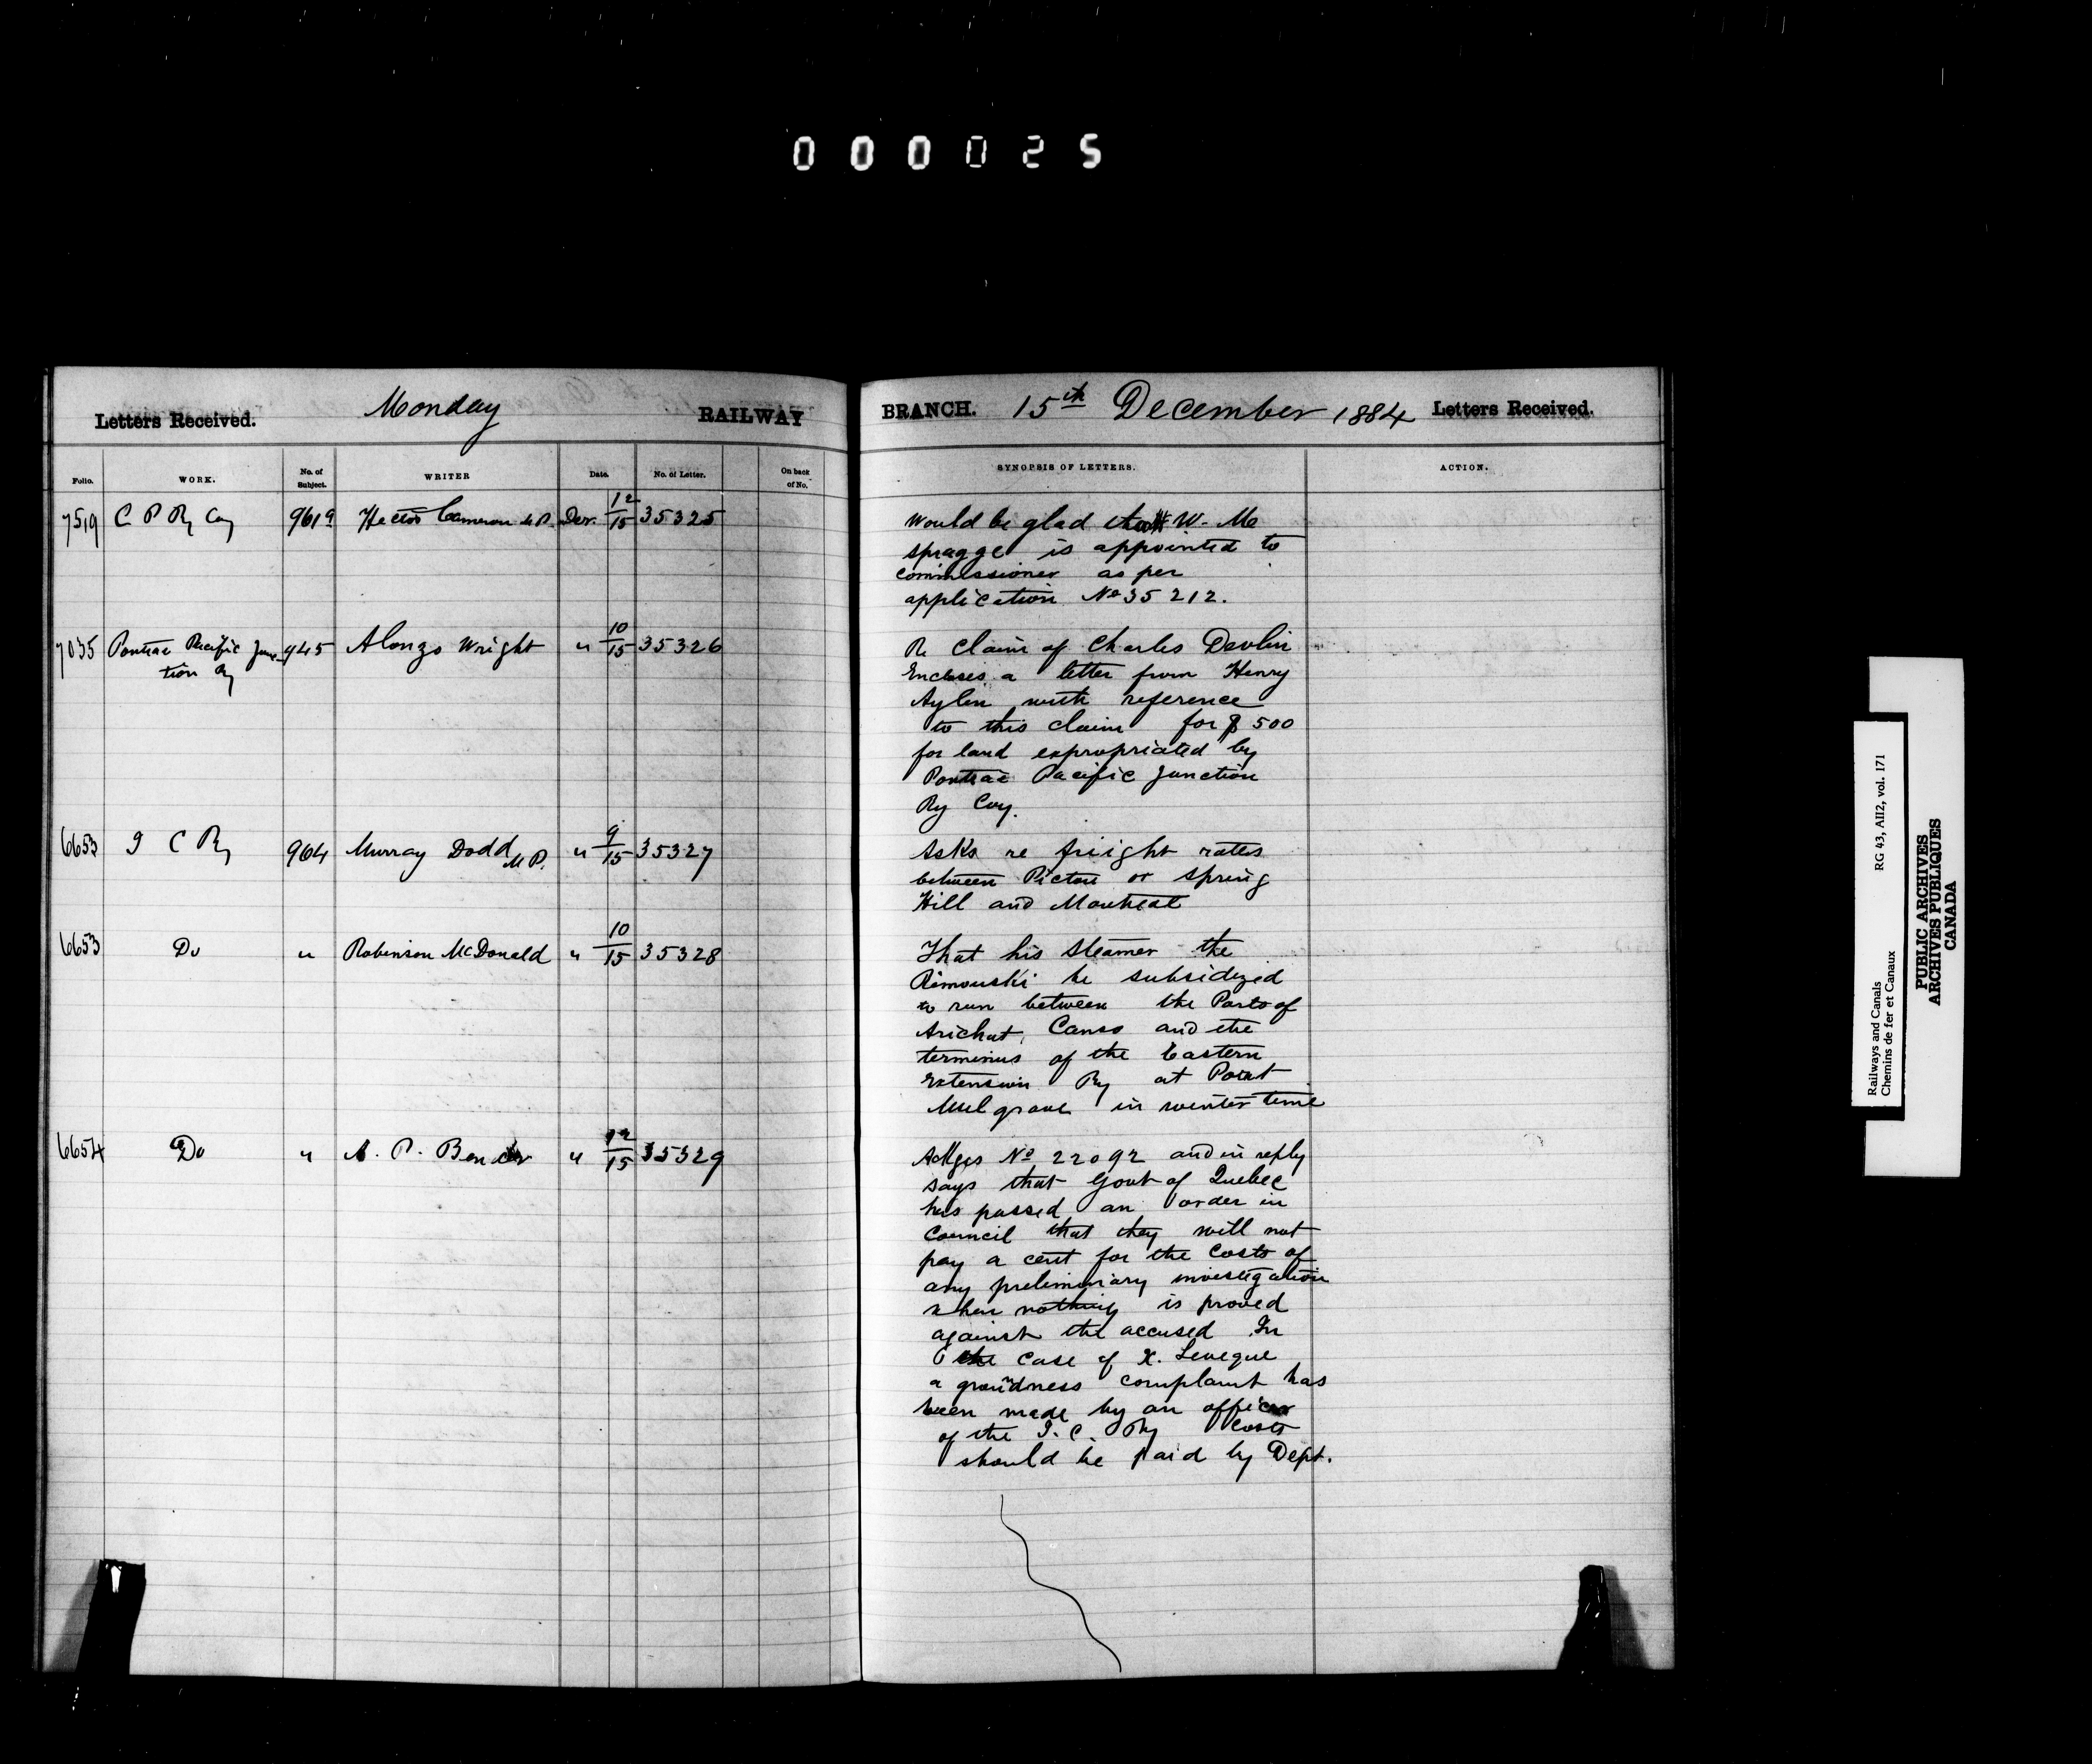 000025
Letters Received. Monday RAILWAY BRANCH. 15th December 1884 Letters Received.
Folio. WORK. No. of Subject. WRITER Date. No. of Letter. On back of No. SYNOPSIS OF LETTERS. ACTION.
7519 C P Ry Coy 9619 Hector Cameron M.P. Dec. 12/15 35325
Would be glad that W. Mc
Spragge is appointed to
commissioner as per
application No 35212.
7035 Pontiac Pacific Junc- 945 Alonzo Wright " 10/15 35326
tion Ry
Re Claim of Charles Devlin
Encloses a letter from Henry
Aylen with reference
to this claim for $500
for land expropriated by
Pontiac Pacific Junction
Ry Coy.
6653 I C Ry 964 Murray Dodd M.P. " 9/15 35327
Asks re frieght rates
between Pictou or Spring
Hill and Montreal
6653 Do " Robinson McDonald " 10/15 35328
That his Steamer the
Rimouski be subsidized
to run between the Ports of
Arichat, Canso and the
terminus of the Eastern
Extension Ry at Port
Mulgrave in winter time
6654 Do " A. P. Bender " 12/15 35329
Ackges No 22092 and in reply
says that Govt of Quebec
has passed an order in
Council that they will not
pay a cent for the costs of
any preliminary investigation
when nothing is proved
against the accused In
the case of X. Leveque
a groundness complaint has
been made by an officer
of the I. C. Ry Costs
should be paid by Dept.
Railways and Canals RG 43, AII2, vol. 171
Chemins de fer et Canaux
PUBLIC ARCHIVES
ARCHIVES PUBLIQUES
CANADA